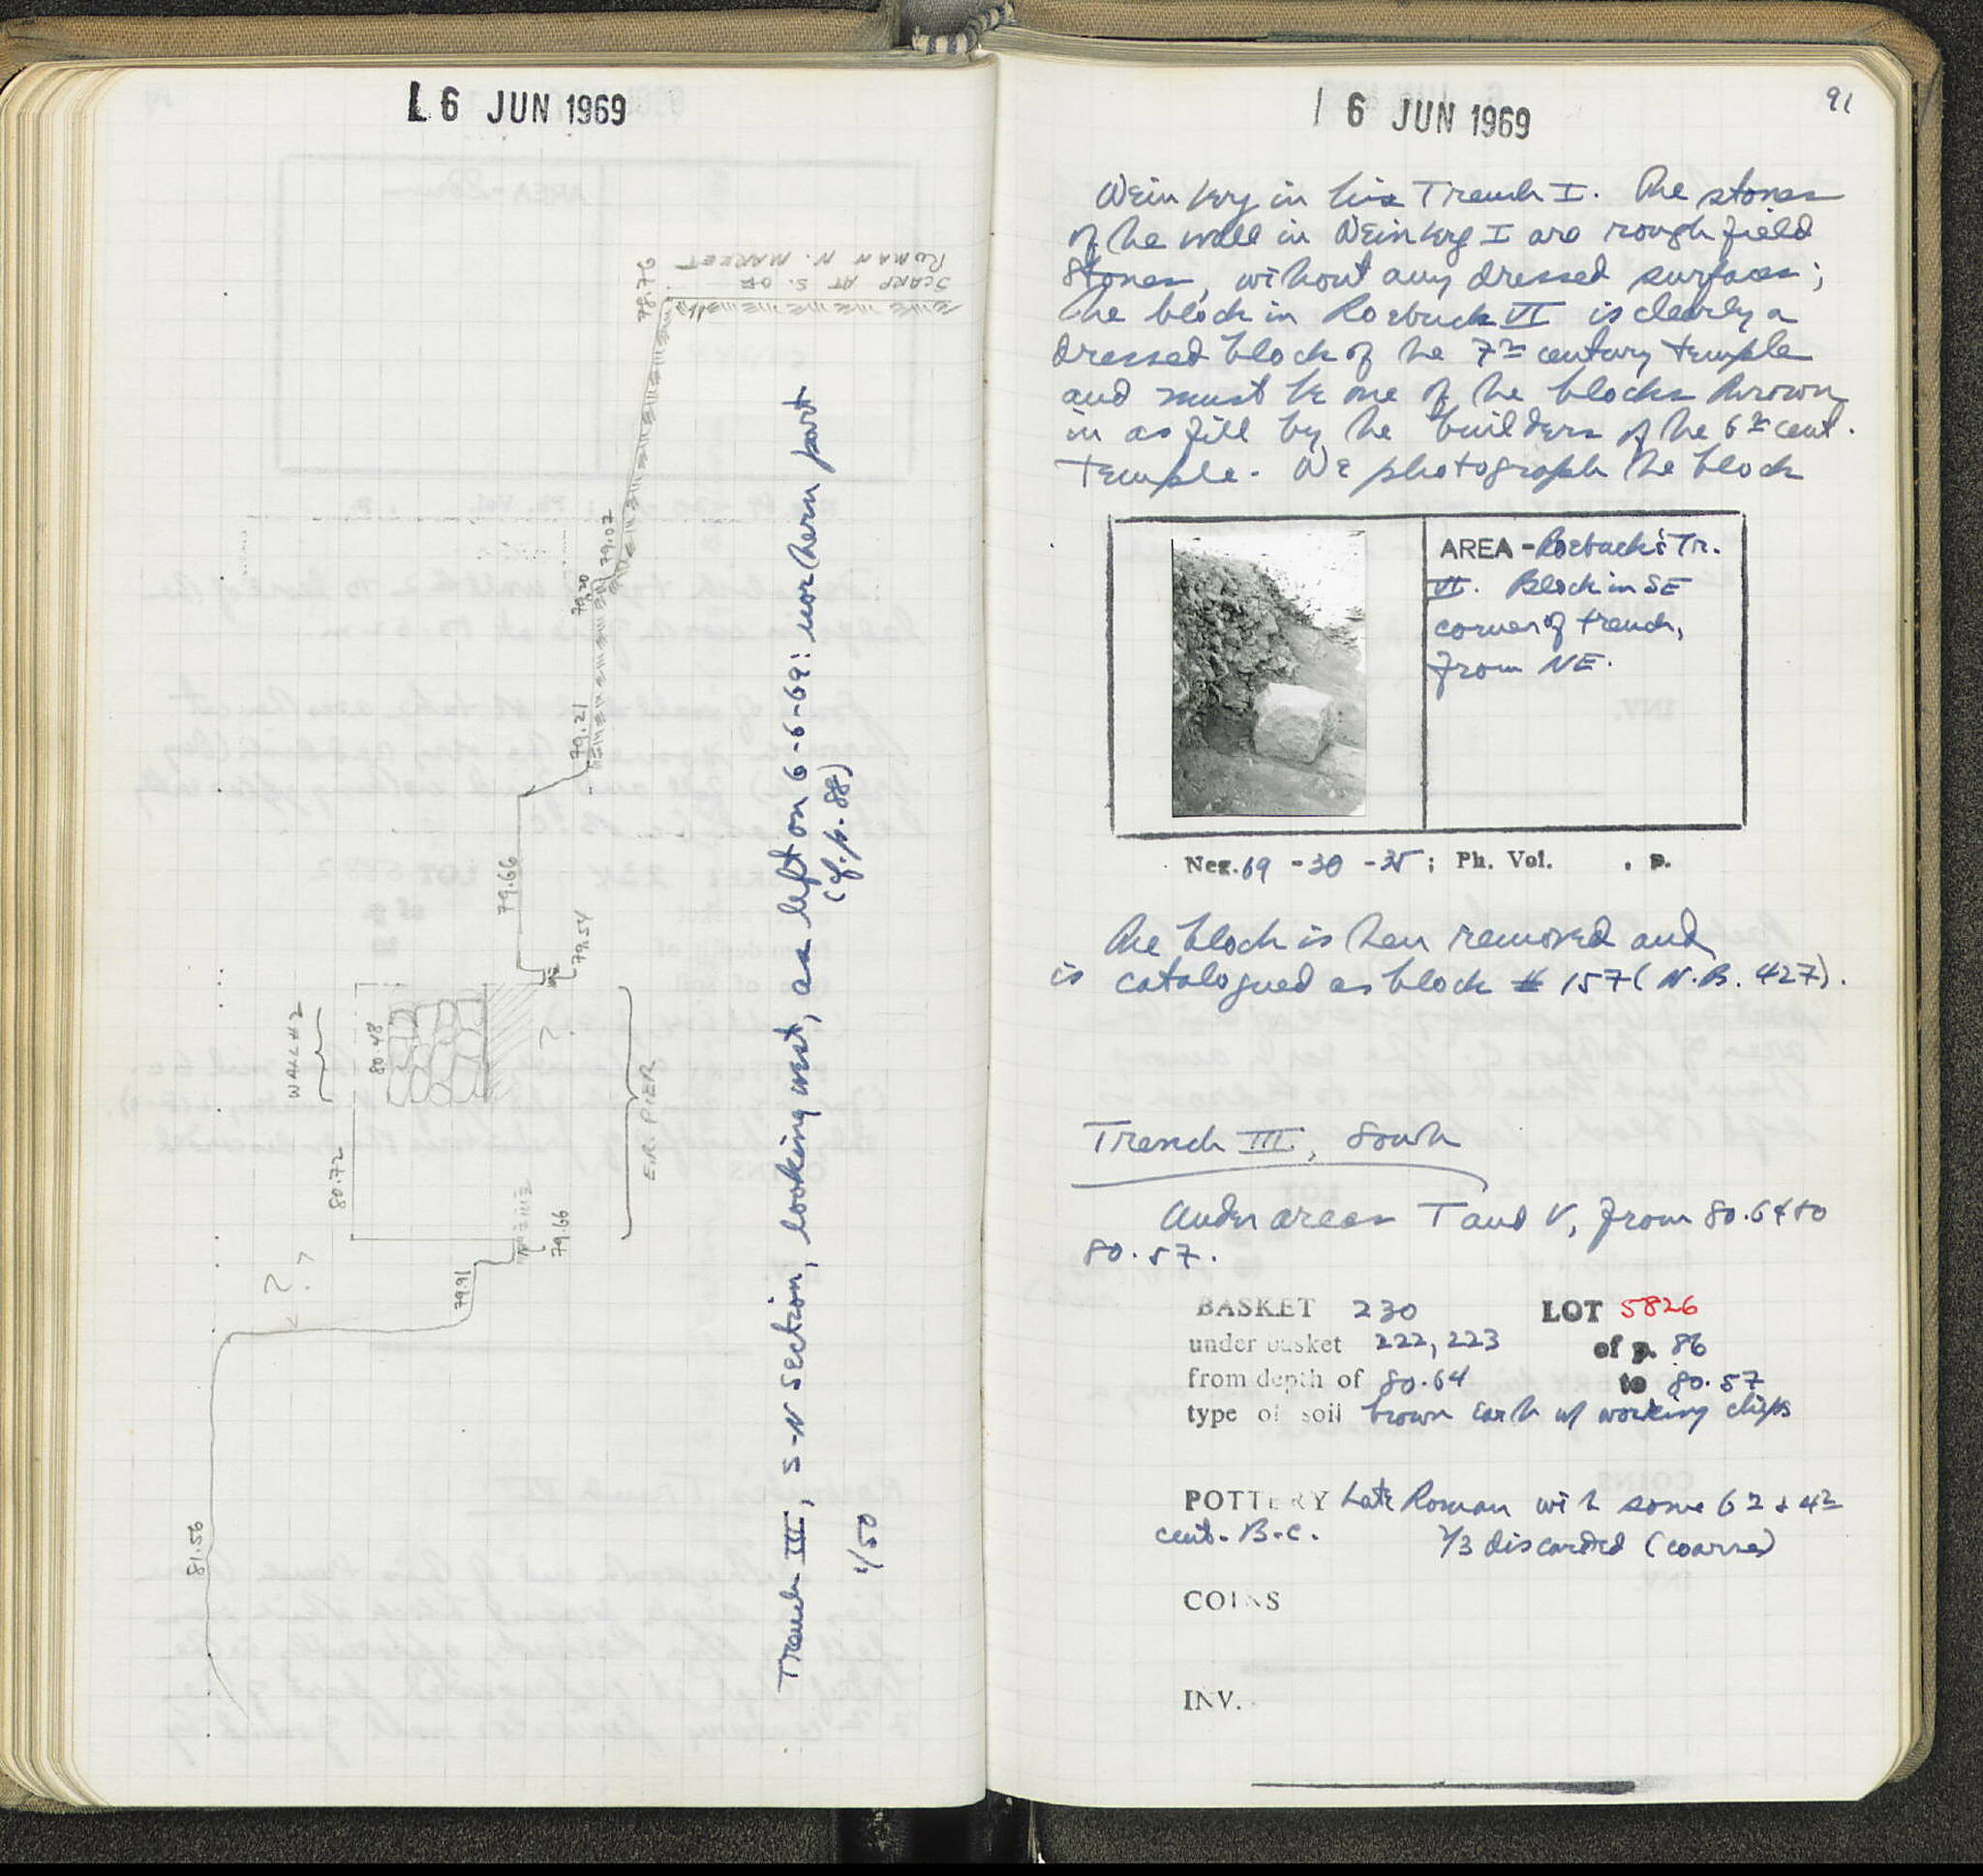 6 JUN 1969
SCARP AT S. OF
ROMAN N. MARKET
78.76
79.07
79.20
79.21
79.66
79.54
WALL #2
80.48
?
E.R. PIER
80.72
79.66
? ?
79.91
81.56
Trench III, S-N Section, looking west, as left on 6-6-69: northern part
(cf. p. 88)
1/50
6 JUN 1969
91
Weinberg in his Trench I. The stones
of the wall in Weinberg I are rough field
stones, without any dressed surfaces;
the block in Roebuck VI is clearly a
dressed block of the 7th century temple
and must be one of the blocks thrown
in as fill by the builders of the 6th cent.
temple. We photograph the block
AREA - Roebuck's Tr.
VI. Block in SE
corner of trench,
from NE.
Neg. 69 - 30 - 35; Ph. Vol. , p.
The block is then removed and
is catalogued as block # 157 (N.B. 427).
Trench III, South
Under areas T and V, from 80.64 to
80.57.
BASKET 230 LOT 5826
under basket 222, 223 of p. 86
from depth of 80.64 to 80.57
type of soil brown earth w/ working chips
POTTERY Late Roman with some 6th & 4th
cent. B.C. 1/3 discarded (coarse)
COINS
INV.